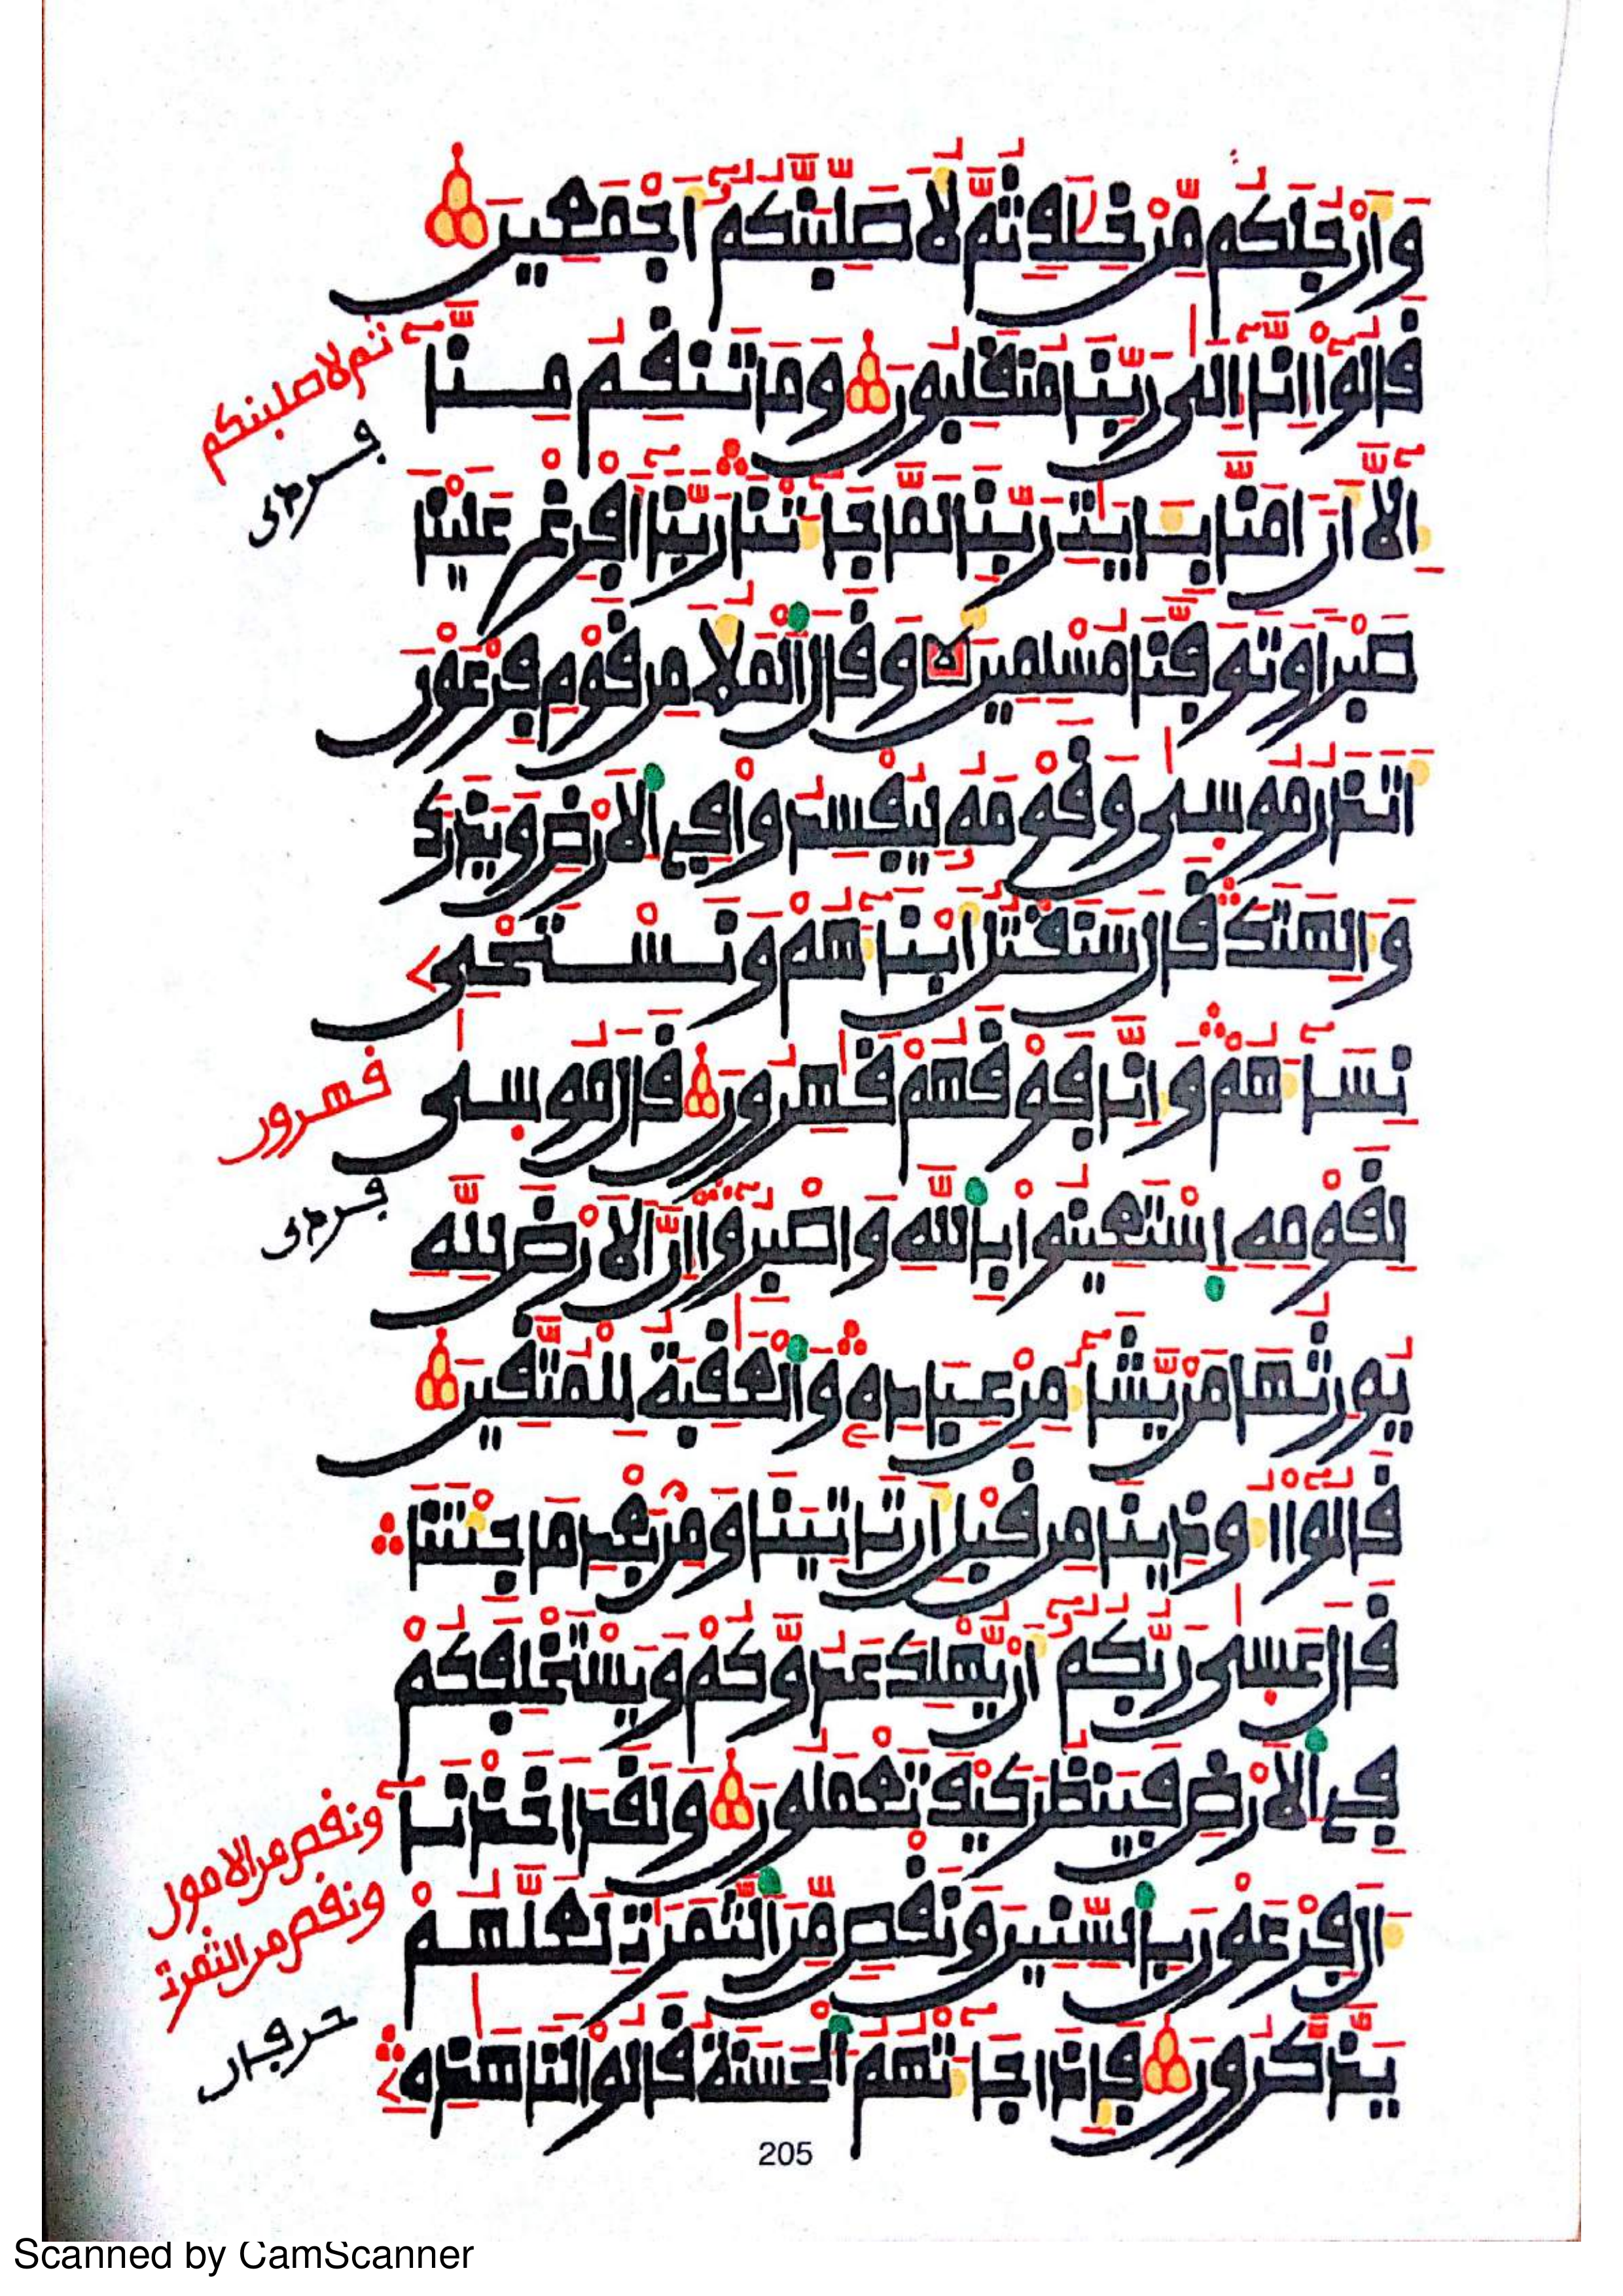 وَأَرْجُلَكُم مِّنْ خِلَٰفٖ ثُمَّ لَأُصَلِّبَنَّكُمُۥٓ أَجْمَعِينَ
قَالُوٓا۟ إِنَّآ إِلَىٰ رَبِّنَا مُنقَلِبُونَ وَمَا تَنقِمُ مِنَّآ
إِلَّآ أَنَ اٰمَنَّا بِـَٔايَٰتِ رَبِّنَا لَمَّا جَآءَتْنَا رَبَّنَآ أَفْرِغْ عَلَيْنَا
صَبْرًا وَتَوَفَّنَا مُسْلِمِينَ وَقَالَ ٱلْمَلَأُ مِن قَوْمِ فِرْعَوْنَ
أَتَذَرُ مُوسَىٰ وَقَوْمَهُۥ لِيُفْسِدُوا۟ فِى ٱلْأَرْضِ وَيَذَرَكَ
وَءَالِهَتَكَ قَالَ سَنَقْتُلُ أَبْنَآءَهُمْ وَنَسْتَحْىِۦ
نِسَآءَهُمْ وَإِنَّا فَوْقَهُمْ قَٰهِرُونَ قَالَ مُوسَىٰ
لِقَوْمِهِ ٱسْتَعِينُوا۟ بِٱللَّهِ وَٱصْبِرُوٓا۟ إِنَّ ٱلْأَرْضَ لِلَّهِ
يُورِثُهَا مَن يَّشَآءُ مِنْ عِبَادِهِۦ وَٱلْعَٰقِبَةُ لِلْمُتَّقِينَ
قَالُوٓا۟ أُوذِينَا مِن قَبْلِ أَن تَاتِيَنَا وَمِنۢ بَعْدِ مَا جِئْتَنَا
قَالَ عَسَىٰ رَبُّكُمُۥٓ أَنْ يُّهْلِكَ عَدُوَّكُمْ وَيَسْتَخْلِفَكُمْ
فِى ٱلْأَرْضِ فَيَنظُرَ كَيْفَ تَعْمَلُونَ وَلَقَدْ أَخَذْنَآ
ءَالَ فِرْعَوْنَ بِٱلسِّنِينَ وَنَقْصٍ مِّنَ ٱلثَّمَرَٰتِ لَعَلَّهُمْ
يَذَّكَّرُونَ فَإِذَا جَآءَتْهُمُ ٱلْحَسَنَةُ قَالُوا۟ لَنَا هَٰذِهِۦ
ثم لاصلبنكم
قهرون
ونقص من الامول
ونقص من الثمرت
حرفان
205
Scanned by CamScanner